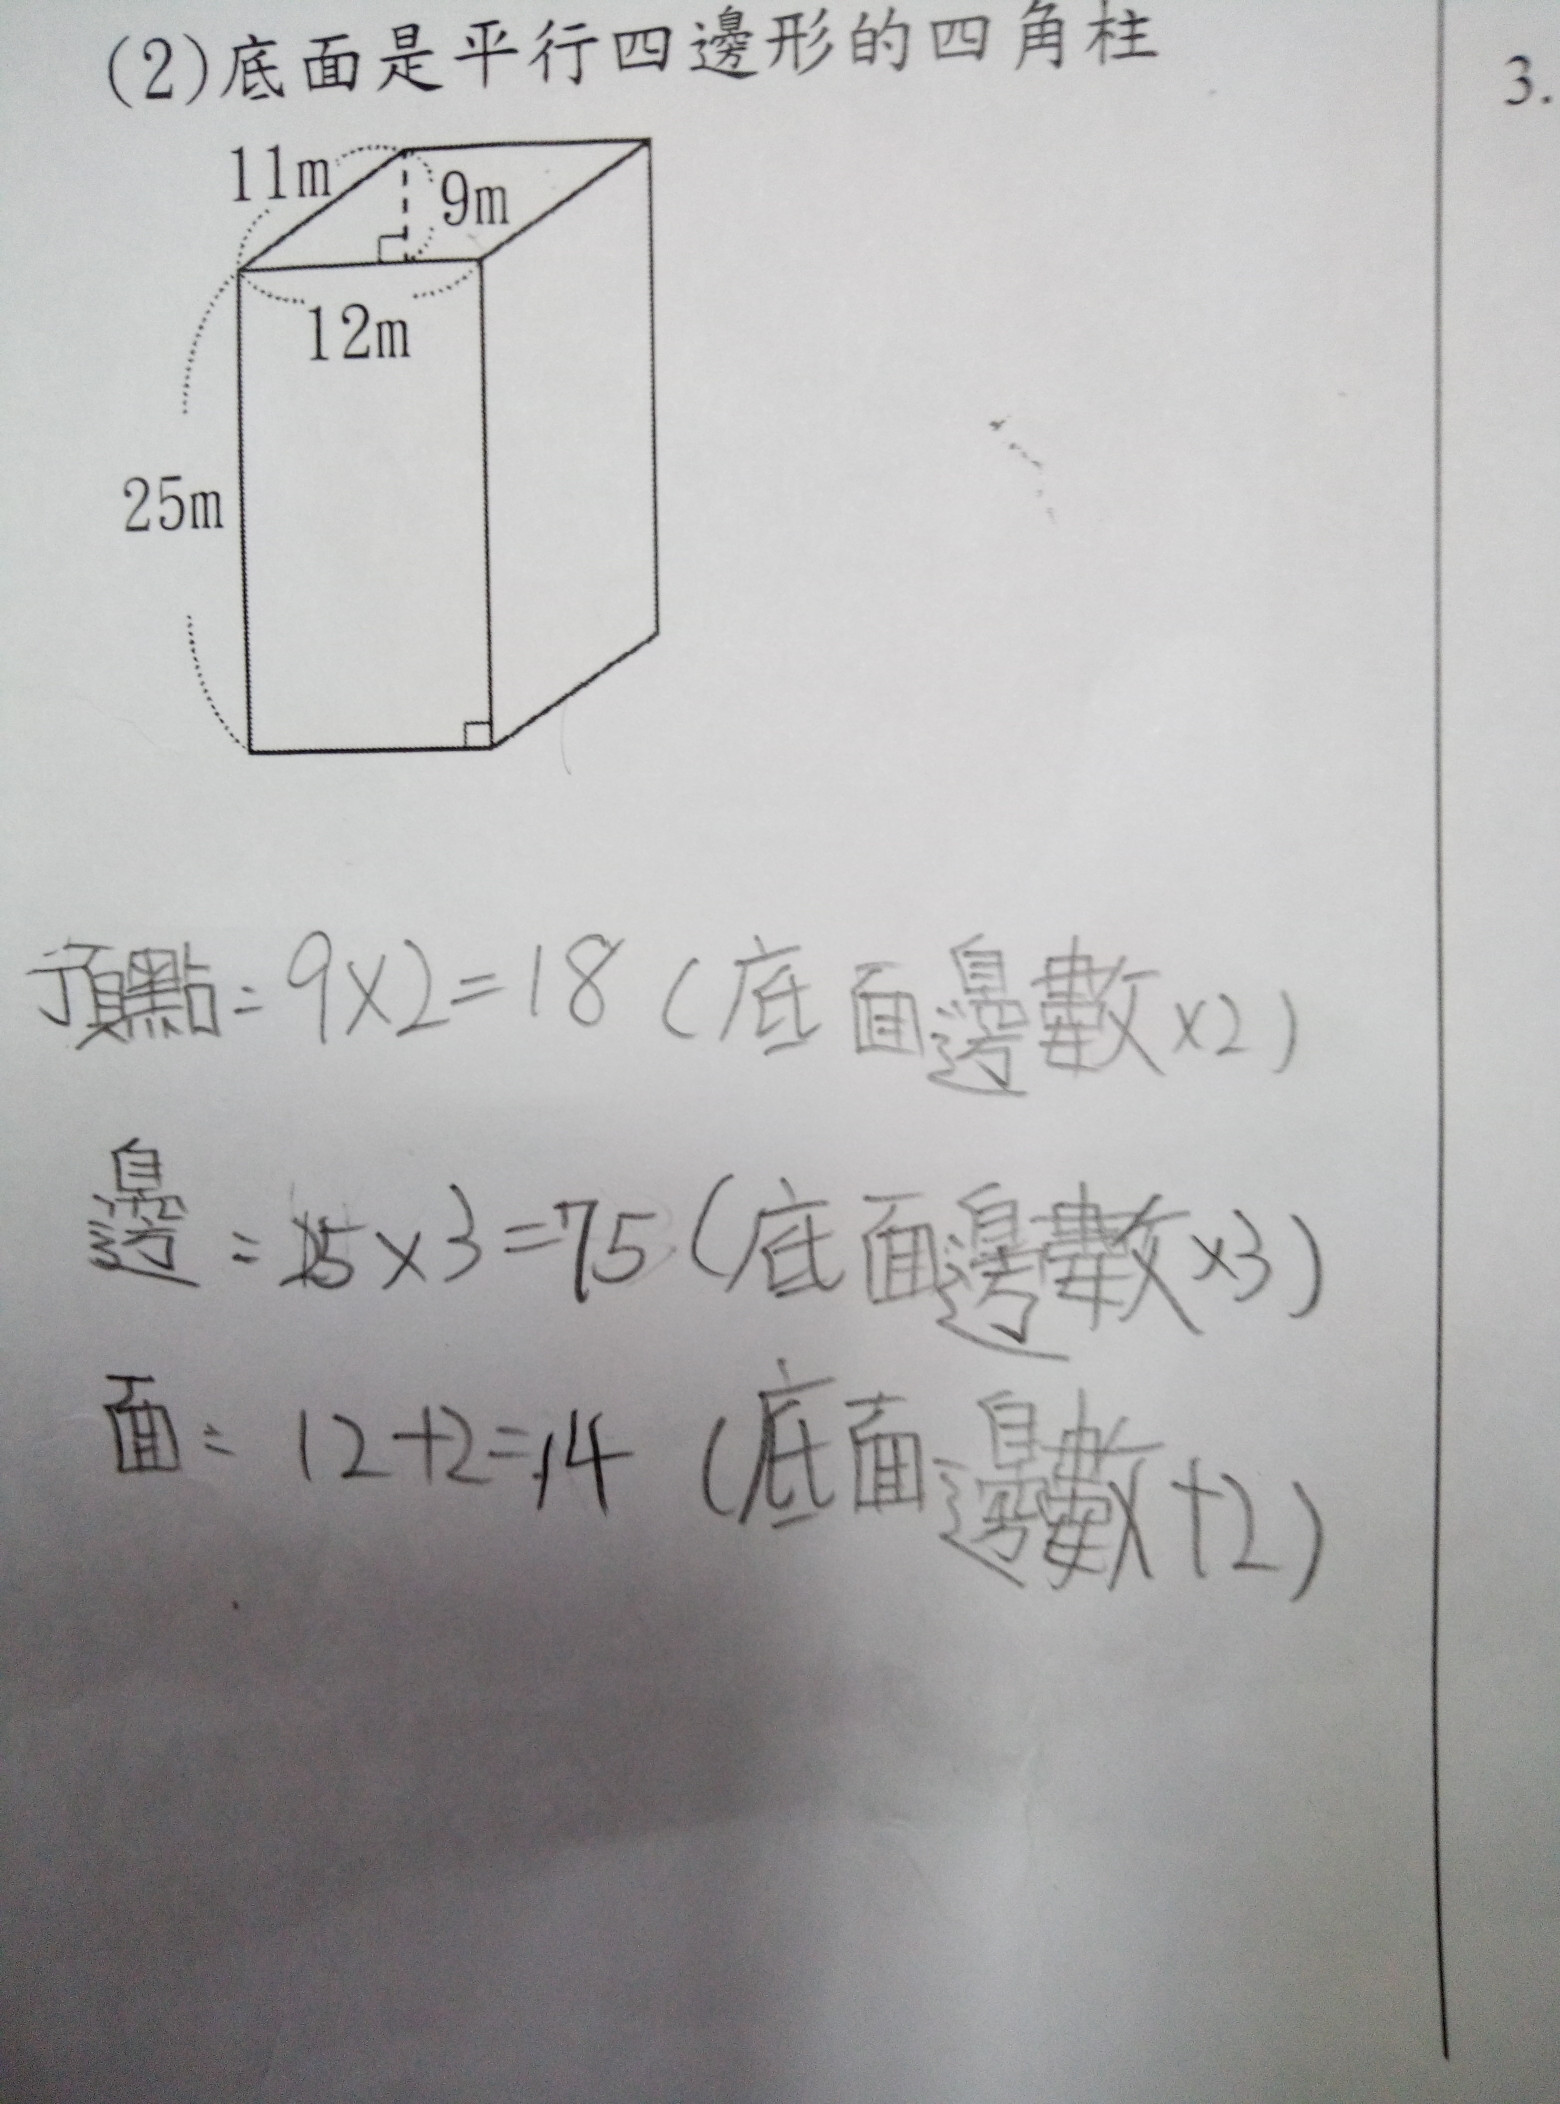 (2)底面是平行四邊形的四角柱
3.
11m
9m
12m
25m
頂點=9×2=18(底面邊數×2)
邊=25×3=75(底面邊數×3)
面=12+2=14(底面邊數+2)